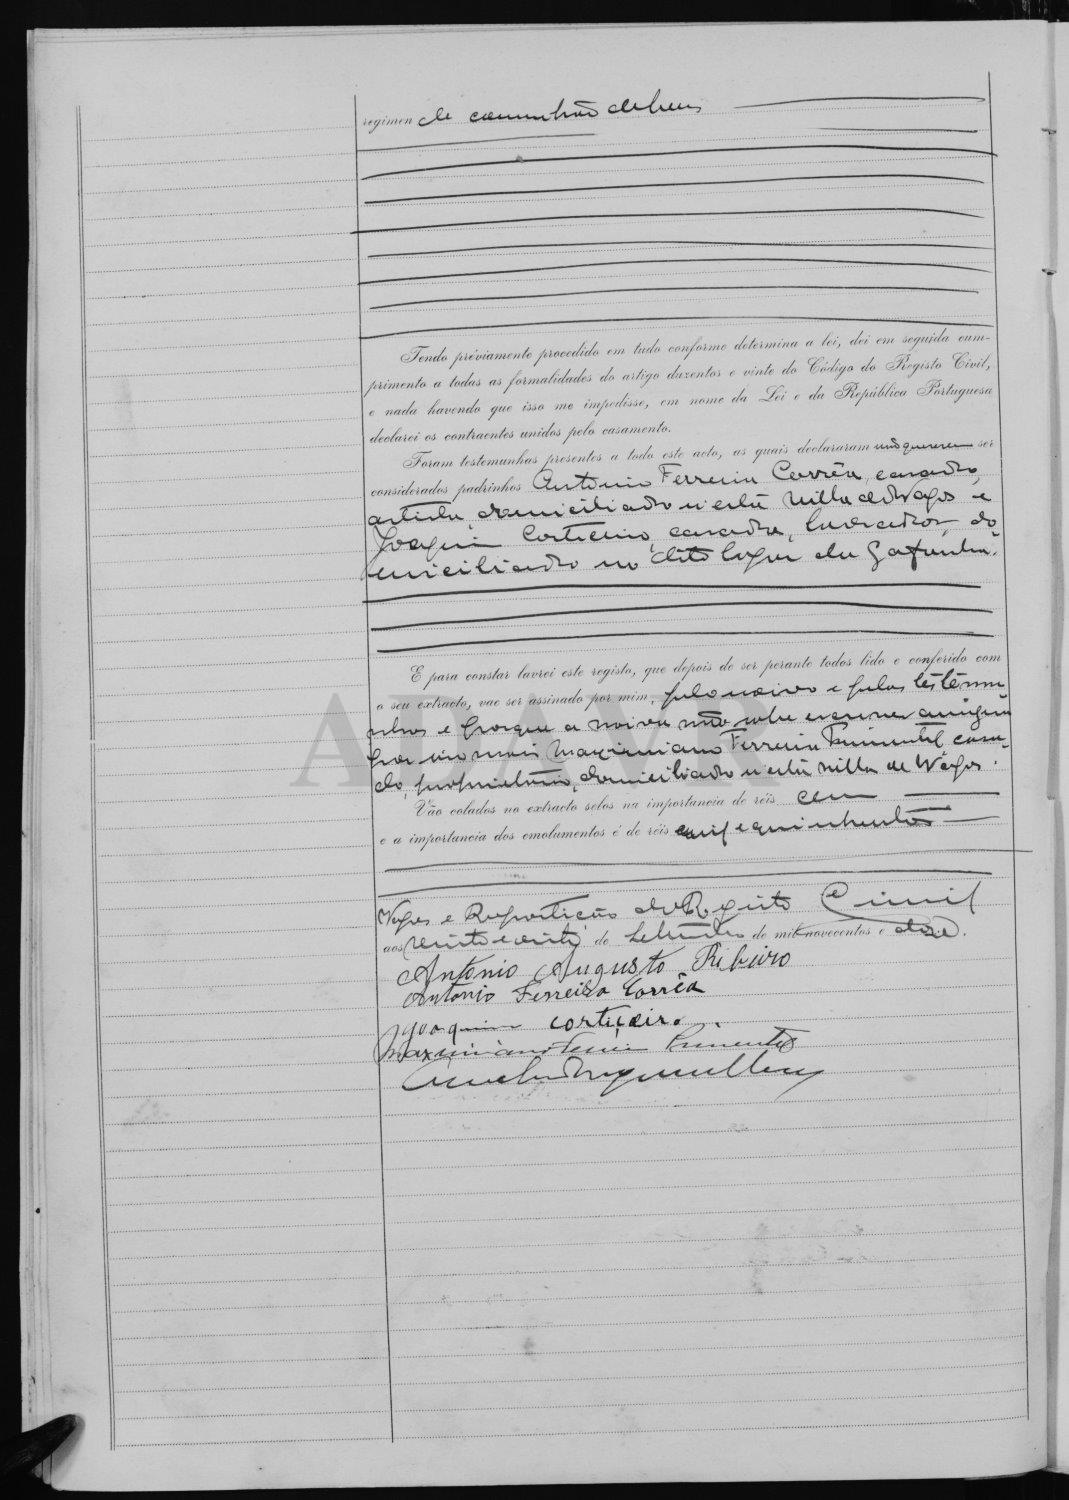 regimen de comunhão de bens
Tendo préviamente procedido em tudo conforme determina a lei, dei em seguida cum-
primento a todas as formalidades do artigo duzentos e vinte do Código do Registo Civil,
e nada havendo que isso me impedisse, em nome da Lei e da República Portuguesa
declarei os contraentes unidos pelo casamento.
Foram testemunhas presentes a todo este acto, as quais declararam não quererem ser
considerados padrinhos Antonio Ferreira Corrêa, casado,
artista, domiciliado n'esta villa de Vagos e
Joaquim Corticeiro, casado, lavrador, do-
miciliado no dito logar da Gafanha.
E para constar lavrei este registo, que depois de ser perante todos lido e conferido com
o seu extracto, vae ser assinado por mim, pelo noivo e pelas testemu
nhas e porque a noiva não sabe escrever assigna
por ella Maximiano Ferreira Pimentel casa-
do, proprietario, domiciliado n'esta villa de Vagos.
Vão colados no extracto selos na importancia de réis cem
e a importancia dos emolumentos é de réis mil e quinhentos
Vagos e Repartição do Registo Civil
aos vinte e oito de Setembro de mil novecentos e doze.
Antonio Augusto Ribeiro
Antonio Ferreira Corrêa
Joaquim corticeiro
Maximiano Ferreira Pimentel
ADAVR